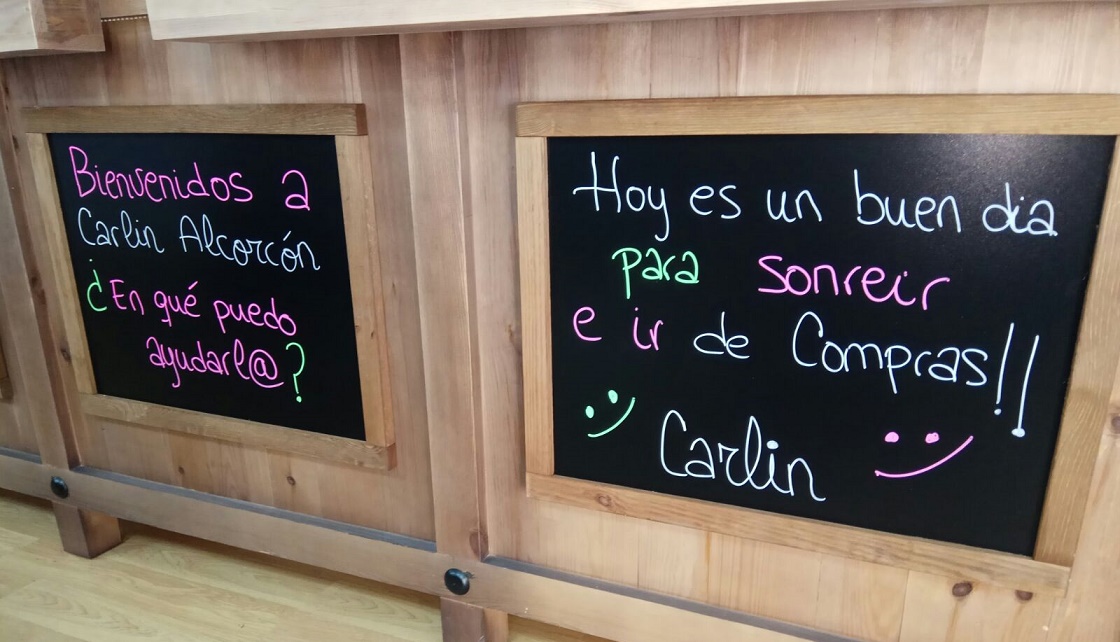 Bienvenidos a
Carlin Alcorcón
¿En qué puedo
ayudarl@?
Hoy es un buen dia
para sonreir
e ir de Compras!!
Carlin